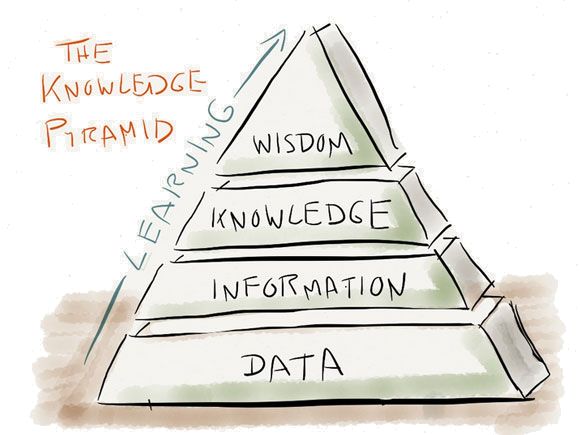 THE
KNOWLEDGE
PYRAMID
LEARNING
WISDOM
KNOWLEDGE
INFORMATION
DATA